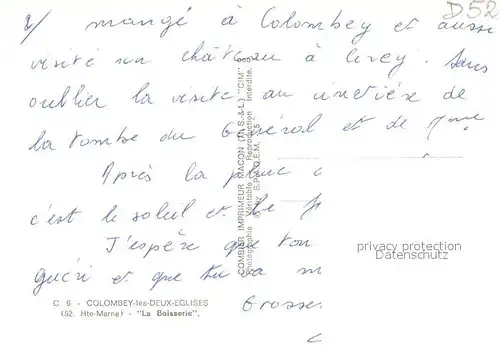 D52
2/ mangé à Colombey et aussi
visité un château à Cirey. Sans
oublier la visite au cimetière de
la tombe du Général et de Mme
Après la pluie
c'est le soleil et le
J'espère que ton
guéri et que tu va m
Grosses
COMBIER IMPRIMEUR MACON (S.-&-L.) "CIM"
Photographie Véritable - Reproduction Interdite.
S.P.A.D.E.M.
C 6 - COLOMBEY-les-DEUX-EGLISES
(52. Hte-Marne) - "La Boisserie".
privacy protection
AK-Ansichtskarten.de